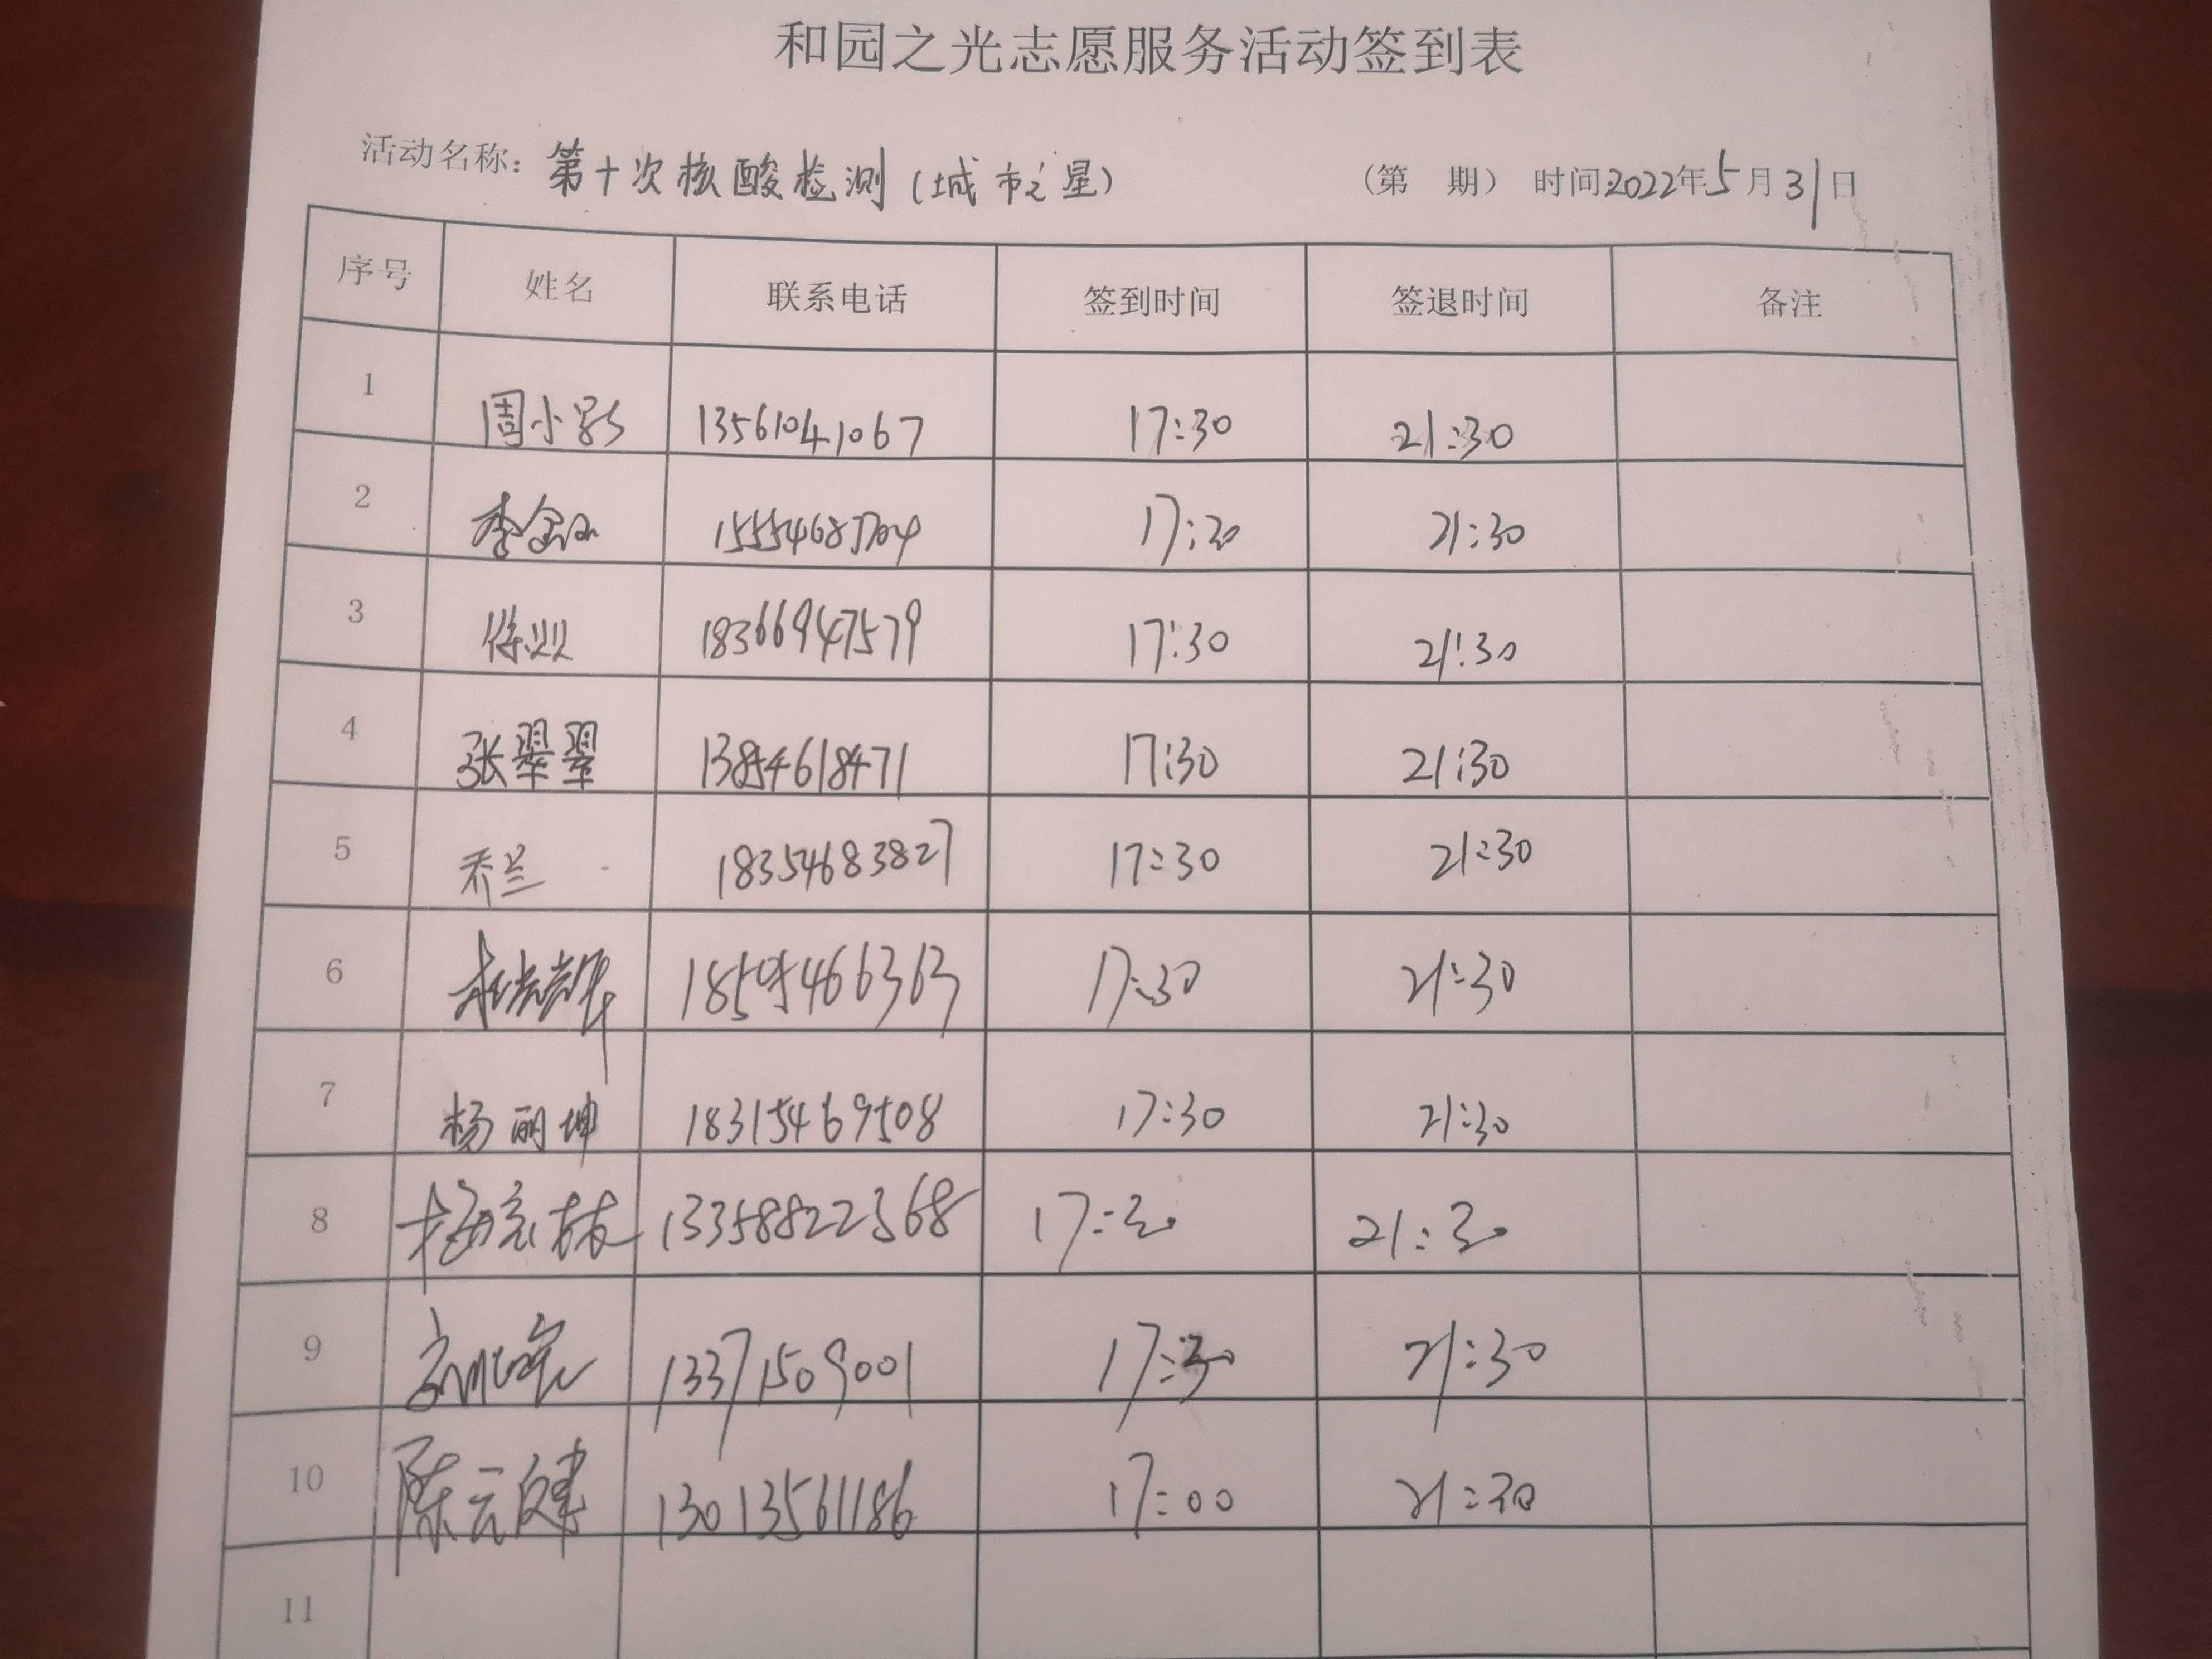 和园之光志愿服务活动签到表
活动名称：第十次核酸检测（城市之星） （第 期） 时间2022年5月31日
序号 姓名 联系电话 签到时间 签退时间 备注
1 周小影 13561041067 17:30 21:30
2 李 17:30 21:30
3 徐 18366947579 17:30 21:30
4 张翠翠 13854618471 17:30 21:30
5 乔兰 18354683827 17:30 21:30
6 17:30 21:30
7 杨丽坤 18315469508 17:30 21:30
8 13358822368 17:30 21:30
9 13371509001 17:30 21:30
10 陈云健 13013561186 17:00 21:30
11